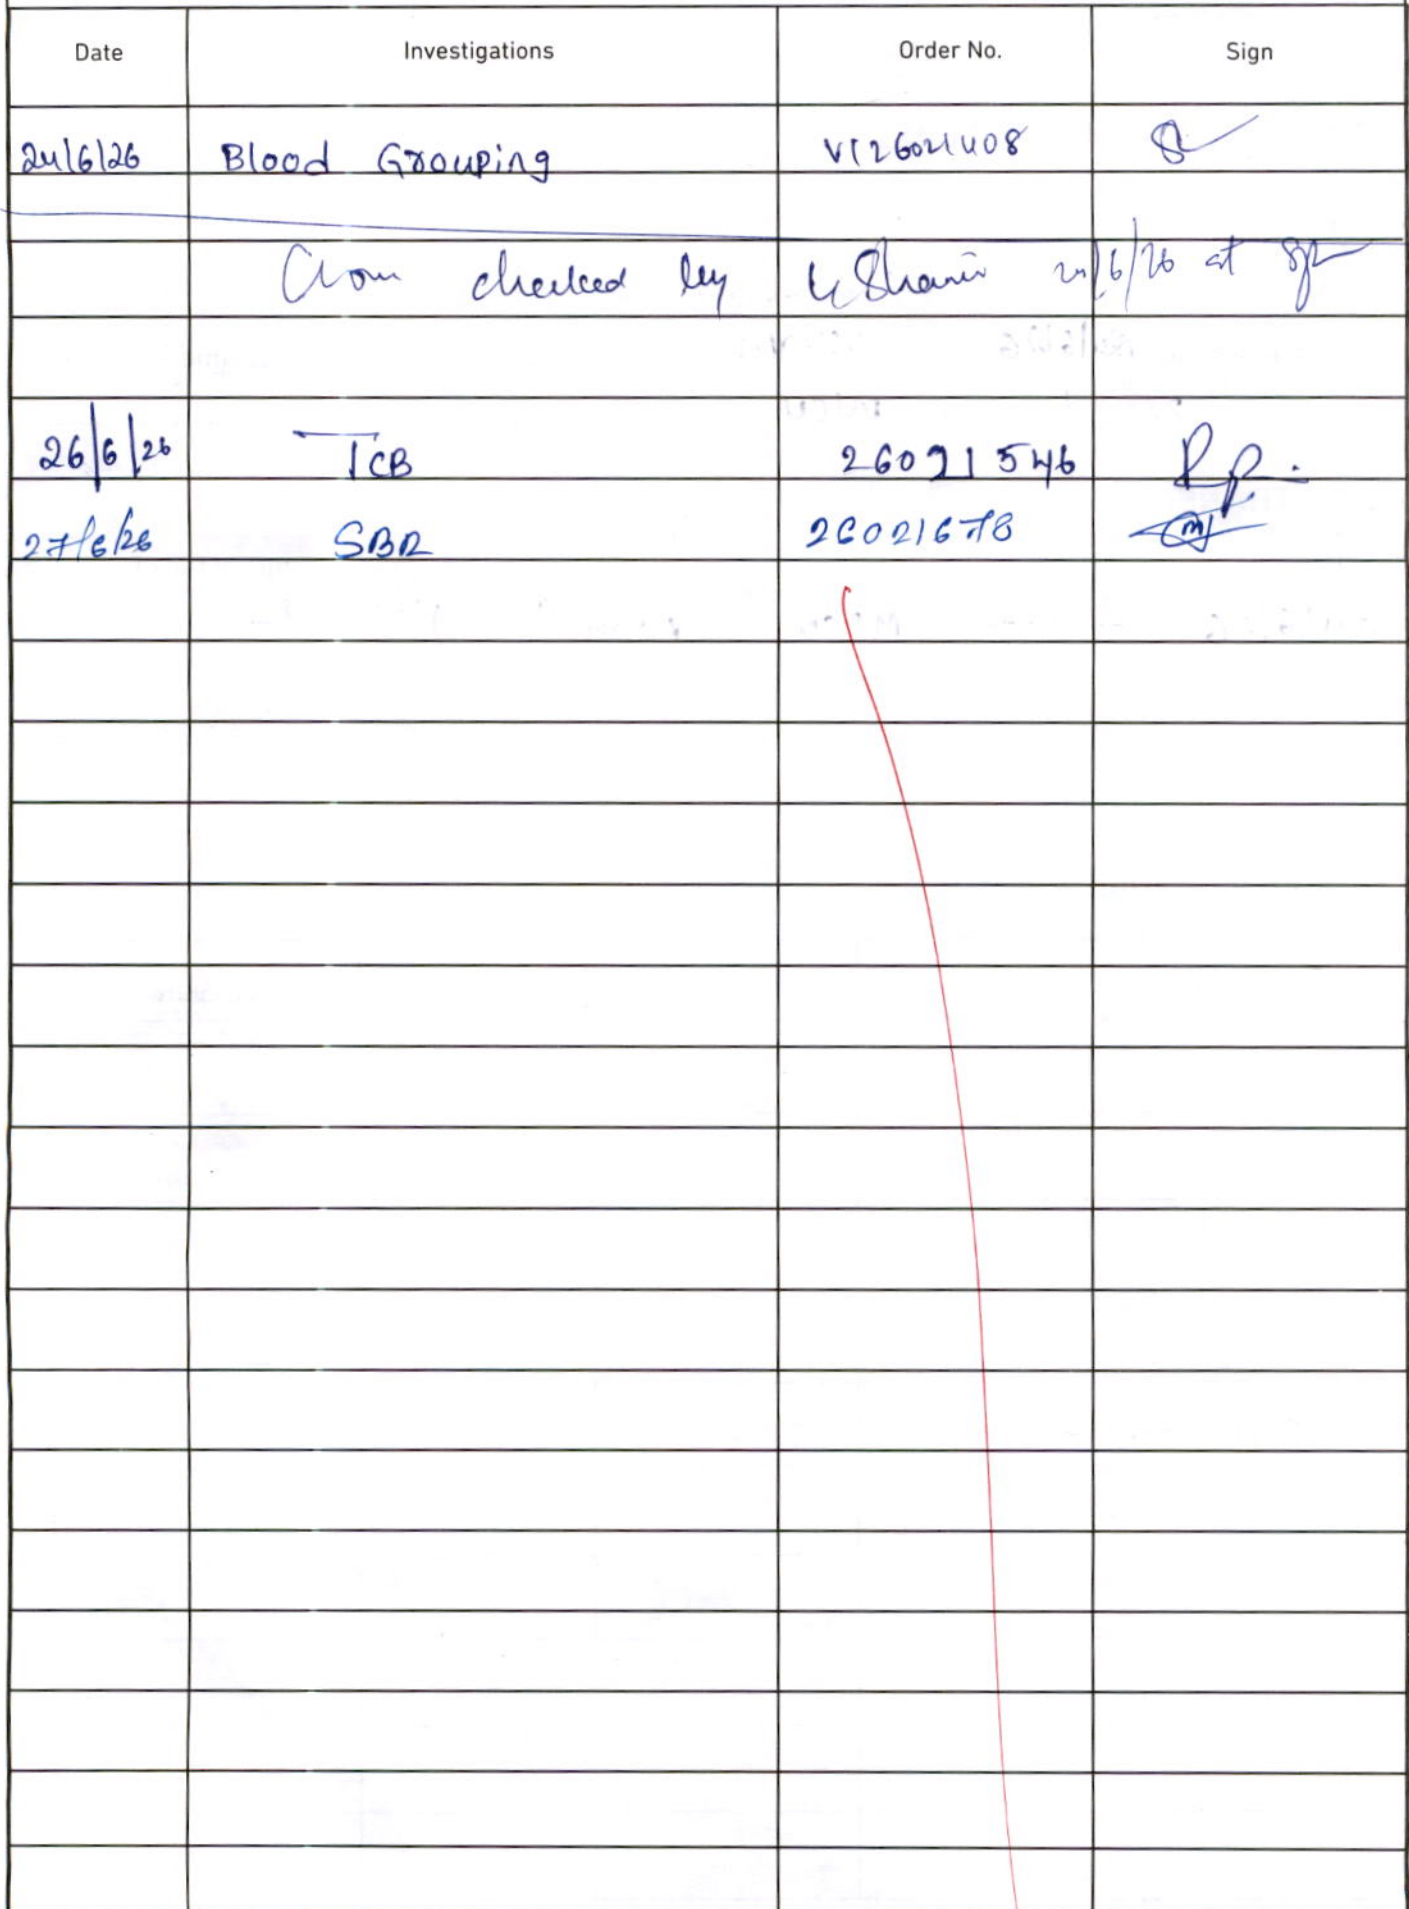 Date Investigations Order No. Sign
24/6/26 Blood Grouping VI26021408
checked by 24/6/26 at
26/6/26 TCB 26021546
27/6/26 SBR 26021678